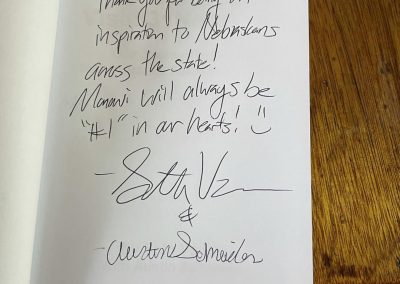 Thank you for being an
inspiration to Nebraskans
across the state!
Manawi will always be
"#1" in our hearts! :)
- Seth V
&
- Austin Schneider